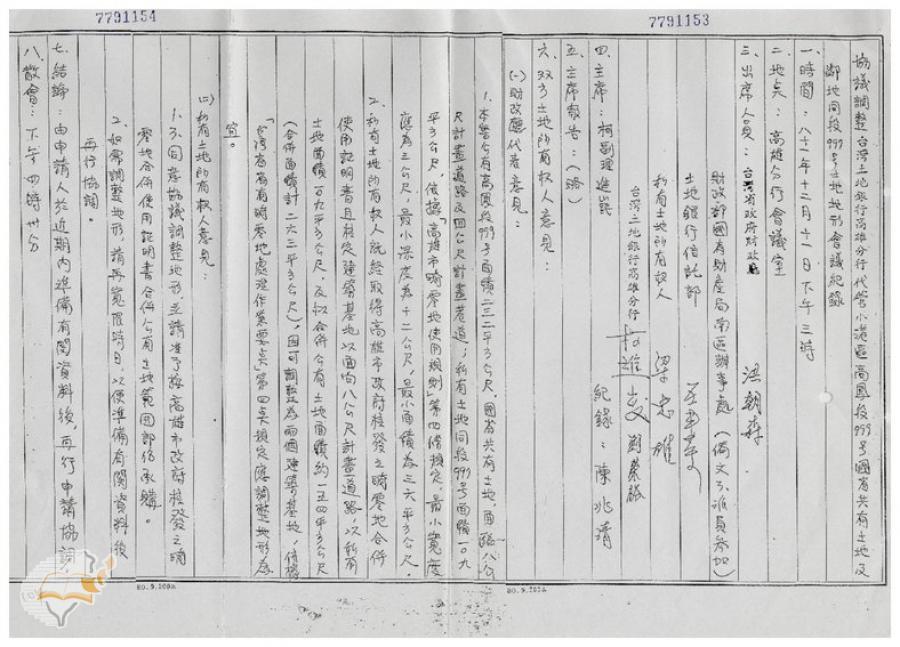 7791153
協議調整台灣土地銀行高雄分行代管小港區高鳳段999號國省共有土地及
鄰地同段 號土地地形會議紀錄
一、時間：八十一年十二月十一日、下午三時
二、地點：高雄分行會議室
三、出席人員：台灣省政府財政廳 洪朝森
財政部國有財產局南區辦事處（備文不派員參加）
土地銀行信託部
私有土地所有权人 梁 雄
台灣土地銀行高雄分行
四、主席：柯副理進 紀錄：陳兆清
五、主席報告：（略）
六、双方土地所有权人意見：
㈠財政廳代表意見：
1.本筆公有高鳳段999号面積二三二平方公尺、國省共有土地、面臨八公
80.9.200本
7791154
尺計畫道路及四公尺計畫巷道；私有土地同段 号面積一〇九
平方公尺，依據「高雄市畸零地使用規則」第四條規定，最小寬度
應為三公尺，最小深度為十二公尺，最小面積為三六平方公尺。
2.私有土地所有权人就經取得高雄市政府核發之畸零地合併
使用証明書且核定建築基地以面向八公尺計畫道路，以私有
土地面積一百九平方公尺，及擬合併公有土地面積約一五四平方公尺
（合併面積計二六三平方公尺），因可調整為兩個建築基地，依據
「台灣省省有畸零地處理作業要点」第四点規定應調整地形為
宜。
㈡私有土地所有权人意見：
1.不同意協議調整地形，並請准予按高雄市政府核發之畸
零地合併使用証明書合併公有土地範圍部份承購。
2.如需調整地形，請再寬限時日，以便準備有関資料後
再行協調。
七、結論：由申請人於近期內準備有関資料後，再行申請協調。
八、散會：下午四時卅分
80.9.200本